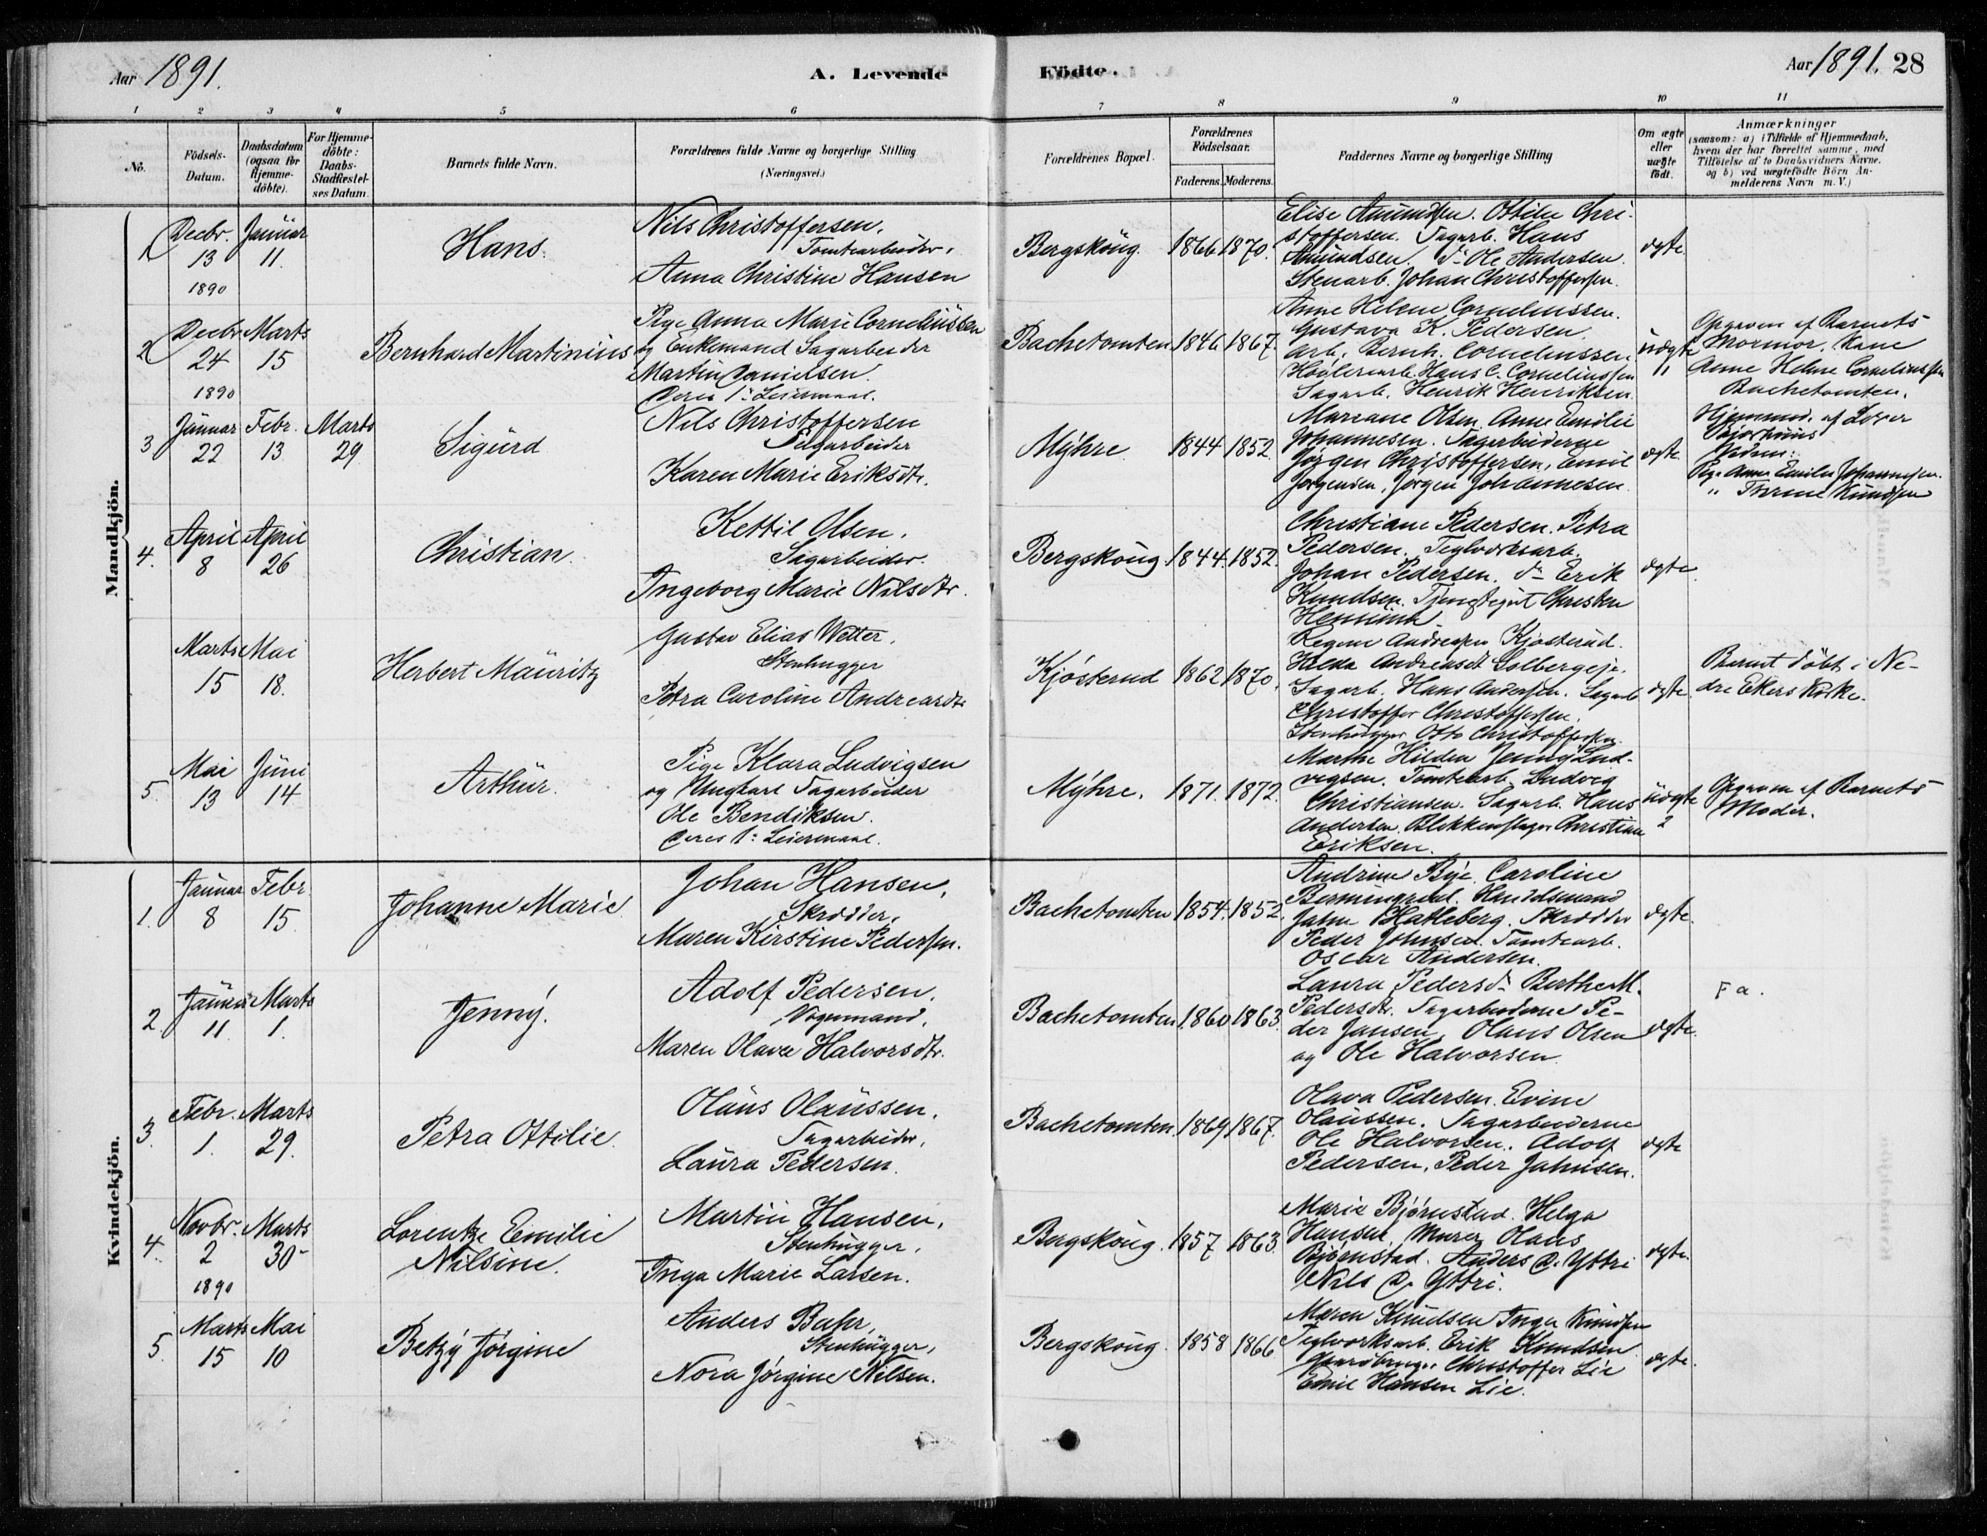 Aar 1891.
A. Levende
Födte.
Aar 1891. 28
1 2 3 4 5 6 7 8 9 10 11
No.
Födsels-
Datum.
Daabsdatum
(ogsaa for
Hjemme-
döbte).
For Hjemme-
döbte:
Daabs-
Stadfæstel-
ses Datum.
Barnets fulde Navn.
Forældrenes fulde Navne og borgerlige Stilling
(Næringsvei.)
Forældrenes Bopæl.
Forældrenes
Födselsaar.
Faderens. Moderens.
Faddernes Navne og borgerlige Stilling
Om ægte
eller
uægte
födt.
Anmærkninger
(saasom: a) i Tilfælde af Hjemmedaab,
hvem der har forrettet samme, med
Tilföielse af to Daabsvidners Navne.
og b) ved uægtefödte Börn An-
melderens Navn m. V.)
Mandkjön.
1
Decbr.
13
1890
Januar
11.
Hans.
Nils Christoffersen,
Tomtearbeider,
Anna Christine Hansen
Bergskoug. 1866 1870.
Elise Amundsen. Ottilie Chri-
stoffersen. Sagarb. Hans
Amundsen. d- Ole Andersen.
Stenarb. Johan Christoffersen.
ægte.
2
Decbr.
24
1890
Marts
15
Bernhard Martinius
Pige Anna Marie Corneliussen
og Enkemand Sagarbeider
Martin Danielsen.
Deres 1: Leiermaal.
Bachetomten 1846 1867.
Anne Helene Corneliussen.
Gustava K. Pedersen
arb. Bernh. Corneliussen
Høvleriarb. Hans C. Corneliussen
Sagarb. Henrik Henriksen.
uægte
Opgiven af Barnets
Mormor. Kone
Anne Helene Corneliussen
Bachetomten.
3
Januar
22
Febr.
13
Marts
29
Sigurd
Nils Christoffersen
Sagarbeider
Karen Marie Eriksdtr.
Myhre 1844 1852.
Mariane Olsen. Anne Emilie
Johannesen. Sagarbeiderne
Jørgen Christoffersen, Emil
Jørgensen, Jørgen Johannesen.
ægte.
Hjemmed. af Lærer
Vidner:
Pige Anne Emilie Johannesen.
" Thrine Knudsen
4.
April
8
April
26
Christian.
Kettil Olsen,
Sagarbeider.
Ingeborg Marie Nilsdtr.
Bergskoug. 1844. 1852.
Christiane Pedersen. Petra
Pedersen. Teglværksarb.
Johan Pedersen. d- Erik
Knudsen. Tjenestegut Christen
ægte.
Marts
15
Mai
18.
Herbert Mauritz
Gustav Elias Wetter.
Stenhugger
Petra Caroline Andreasdtr
Kjøsterud 1862 1870.
Regine Andreasen Kjøsterud.
Hilda Andreasdt Solbergeje.
Sagarb. Hans Andersen. Sagarb
Christoffer Christoffersen.
Stenhugger Otto Christoffersen.
ægte.
Barnet döbt i Ne-
dre Ekers Kirke.
5.
Mai
13
Juni
14
Arthur.
Pige Klara Ludvigsen
og Ungkarl Sagarbeider
Ole Bendiksen.
Deres 1: Leiermaal.
Myhre. 1871. 1872.
Marthe Hilden Jenny Lud-
vigsen. Tomtearb. Ludvig
Christiansen. Sagarb. Hans
Andersen. Blikkenslager Christian
Eriksen.
uægte
2
Opgiven af Barnets
Moder.
Kvindekjön.
1.
Januar
8
Febr.
15.
Johanne Marie
Johan Hansen,
Skrædder,
Maren Kirstine Pedersen.
Bachetomten 1854. 1852.
Andrine Bye. Caroline
Handelsmand
Hatleberg. Skrædder
Peder Johnsen. Tomtearb.
Oscar Andersen.
ægte.
2
Januar
11.
Marts
1.
Jenny.
Adolf Pedersen.
Vognmand.
Maren Olava Halvorsdtr.
Bachetomten 1860 1863.
Laura Pedersd- Berthe M.
Pedersdtr. Sagarbeiderne Pe-
der Jansen, Olaus Olsen
og Ole Halvorsen.
ægte.
Fa.
3.
Febr.
1.
Marts
29.
Petra Ottilie.
Olaus Olaussen.
Sagarbeider,
Laura Pedersen.
Bachetomten. 1869 1867.
Olava Pedersen. Evine
Olaussen. Sagarbeiderne
Ole Halvorsen. Adolf
Pedersen, Peder Jahnsen.
ægte
4.
Novbr.
2
1890
Marts
30
Lorentze Emilie
Nilsine.
Martin Hansen.
Stenhugger,
Inga Marie Larsen.
Bergskoug. 1857 1863
Marie Bjørnstad. Helga
Hansen. Murer Olaus
Bjørnstad. Anders A. Yttri
Nils A. Yttri.
ægte.
5.
Marts
15
Mai
10
Betzy Jørgine
Anders Bahr,
Stenhugger,
Nora Jørgine Nilsen.
Bergskoug. 1858 1866
Maren Knudsen Inga Knudsen
Teglværksarb. Erik Knudsen.
Gaardbruger Christoffer Lie
Emil Hansen Lie.
ægte.